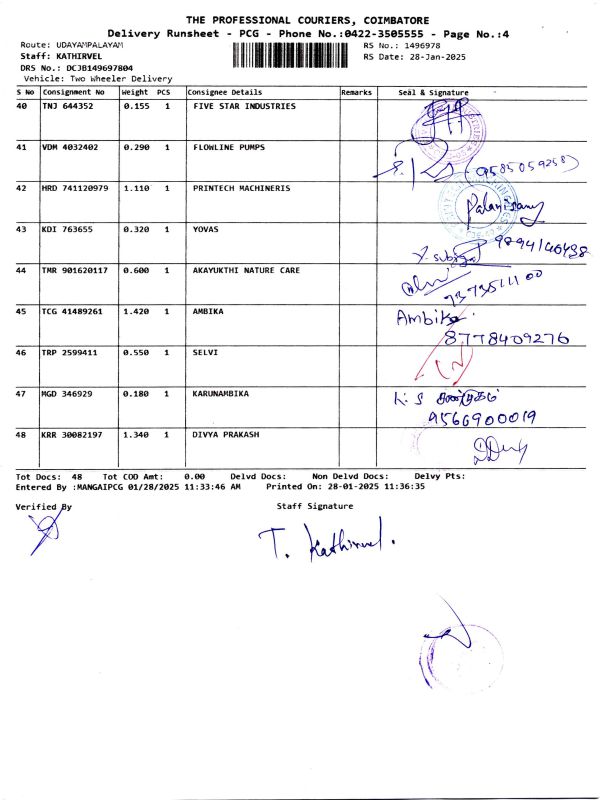 THE PROFESSIONAL COURIERS, COIMBATORE
Delivery Runsheet - PCG - Phone No.:0422-3505555 - Page No.:4
Route: UDAYAMPALAYAM RS No.: 1496978
Staff: KATHIRVEL RS Date: 28-Jan-2025
DRS No.: DCJB149697804
Vehicle: Two Wheeler Delivery
S No Consignment No Weight PCS Consignee Details Remarks Seal & Signature
40 TNJ 644352 0.155 1 FIVE STAR INDUSTRIES
41 VDM 4032402 0.290 1 FLOWLINE PUMPS
(9585059258)
42 HRD 741120979 1.110 1 PRINTECH MACHINERIS
Palanisamy
43 KDI 763655 0.320 1 YOVAS
9894140438
44 TMR 901620117 0.600 1 AKAYUKTHI NATURE CARE
7373511100
45 TCG 41489261 1.420 1 AMBIKA Ambika
8778409276
46 TRP 2599411 0.550 1 SELVI
47 MGD 346929 0.180 1 KARUNAMBIKA K. S
9566900019
48 KRR 30082197 1.340 1 DIVYA PRAKASH
Tot Docs: 48 Tot COD Amt: 0.00 Delvd Docs: Non Delvd Docs: Delvy Pts:
Entered By :MANGAIPCG 01/28/2025 11:33:46 AM Printed On: 28-01-2025 11:36:35
Verified By Staff Signature
T. Kathirvel.